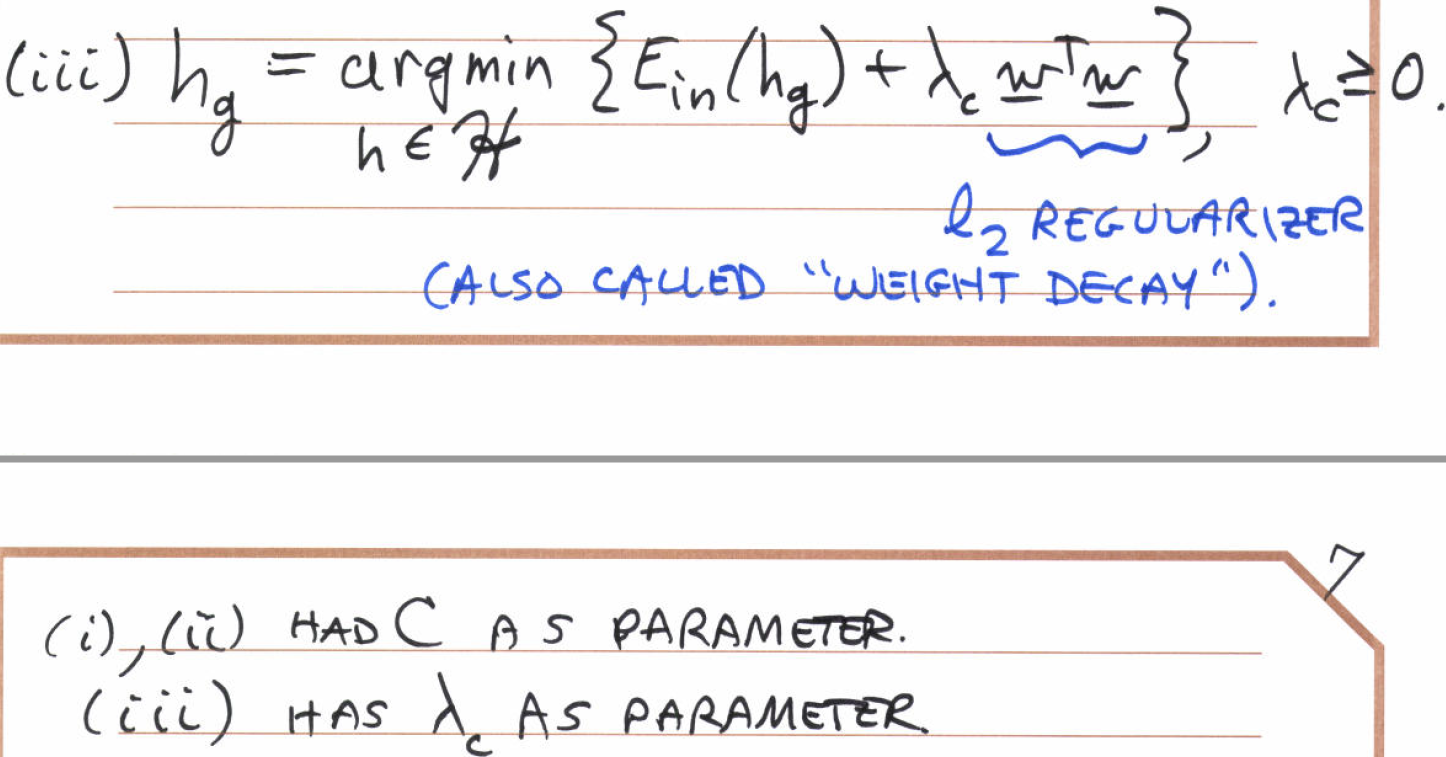 (iii) h_g = argmin {E_in(h_g) + λ_c w^T w}, λ_c ≥ 0.
h ∈ ℋ
l_2 REGULARIZER
(ALSO CALLED "WEIGHT DECAY").
7
(i), (ii) HAD C AS PARAMETER.
(iii) HAS λ_c AS PARAMETER.